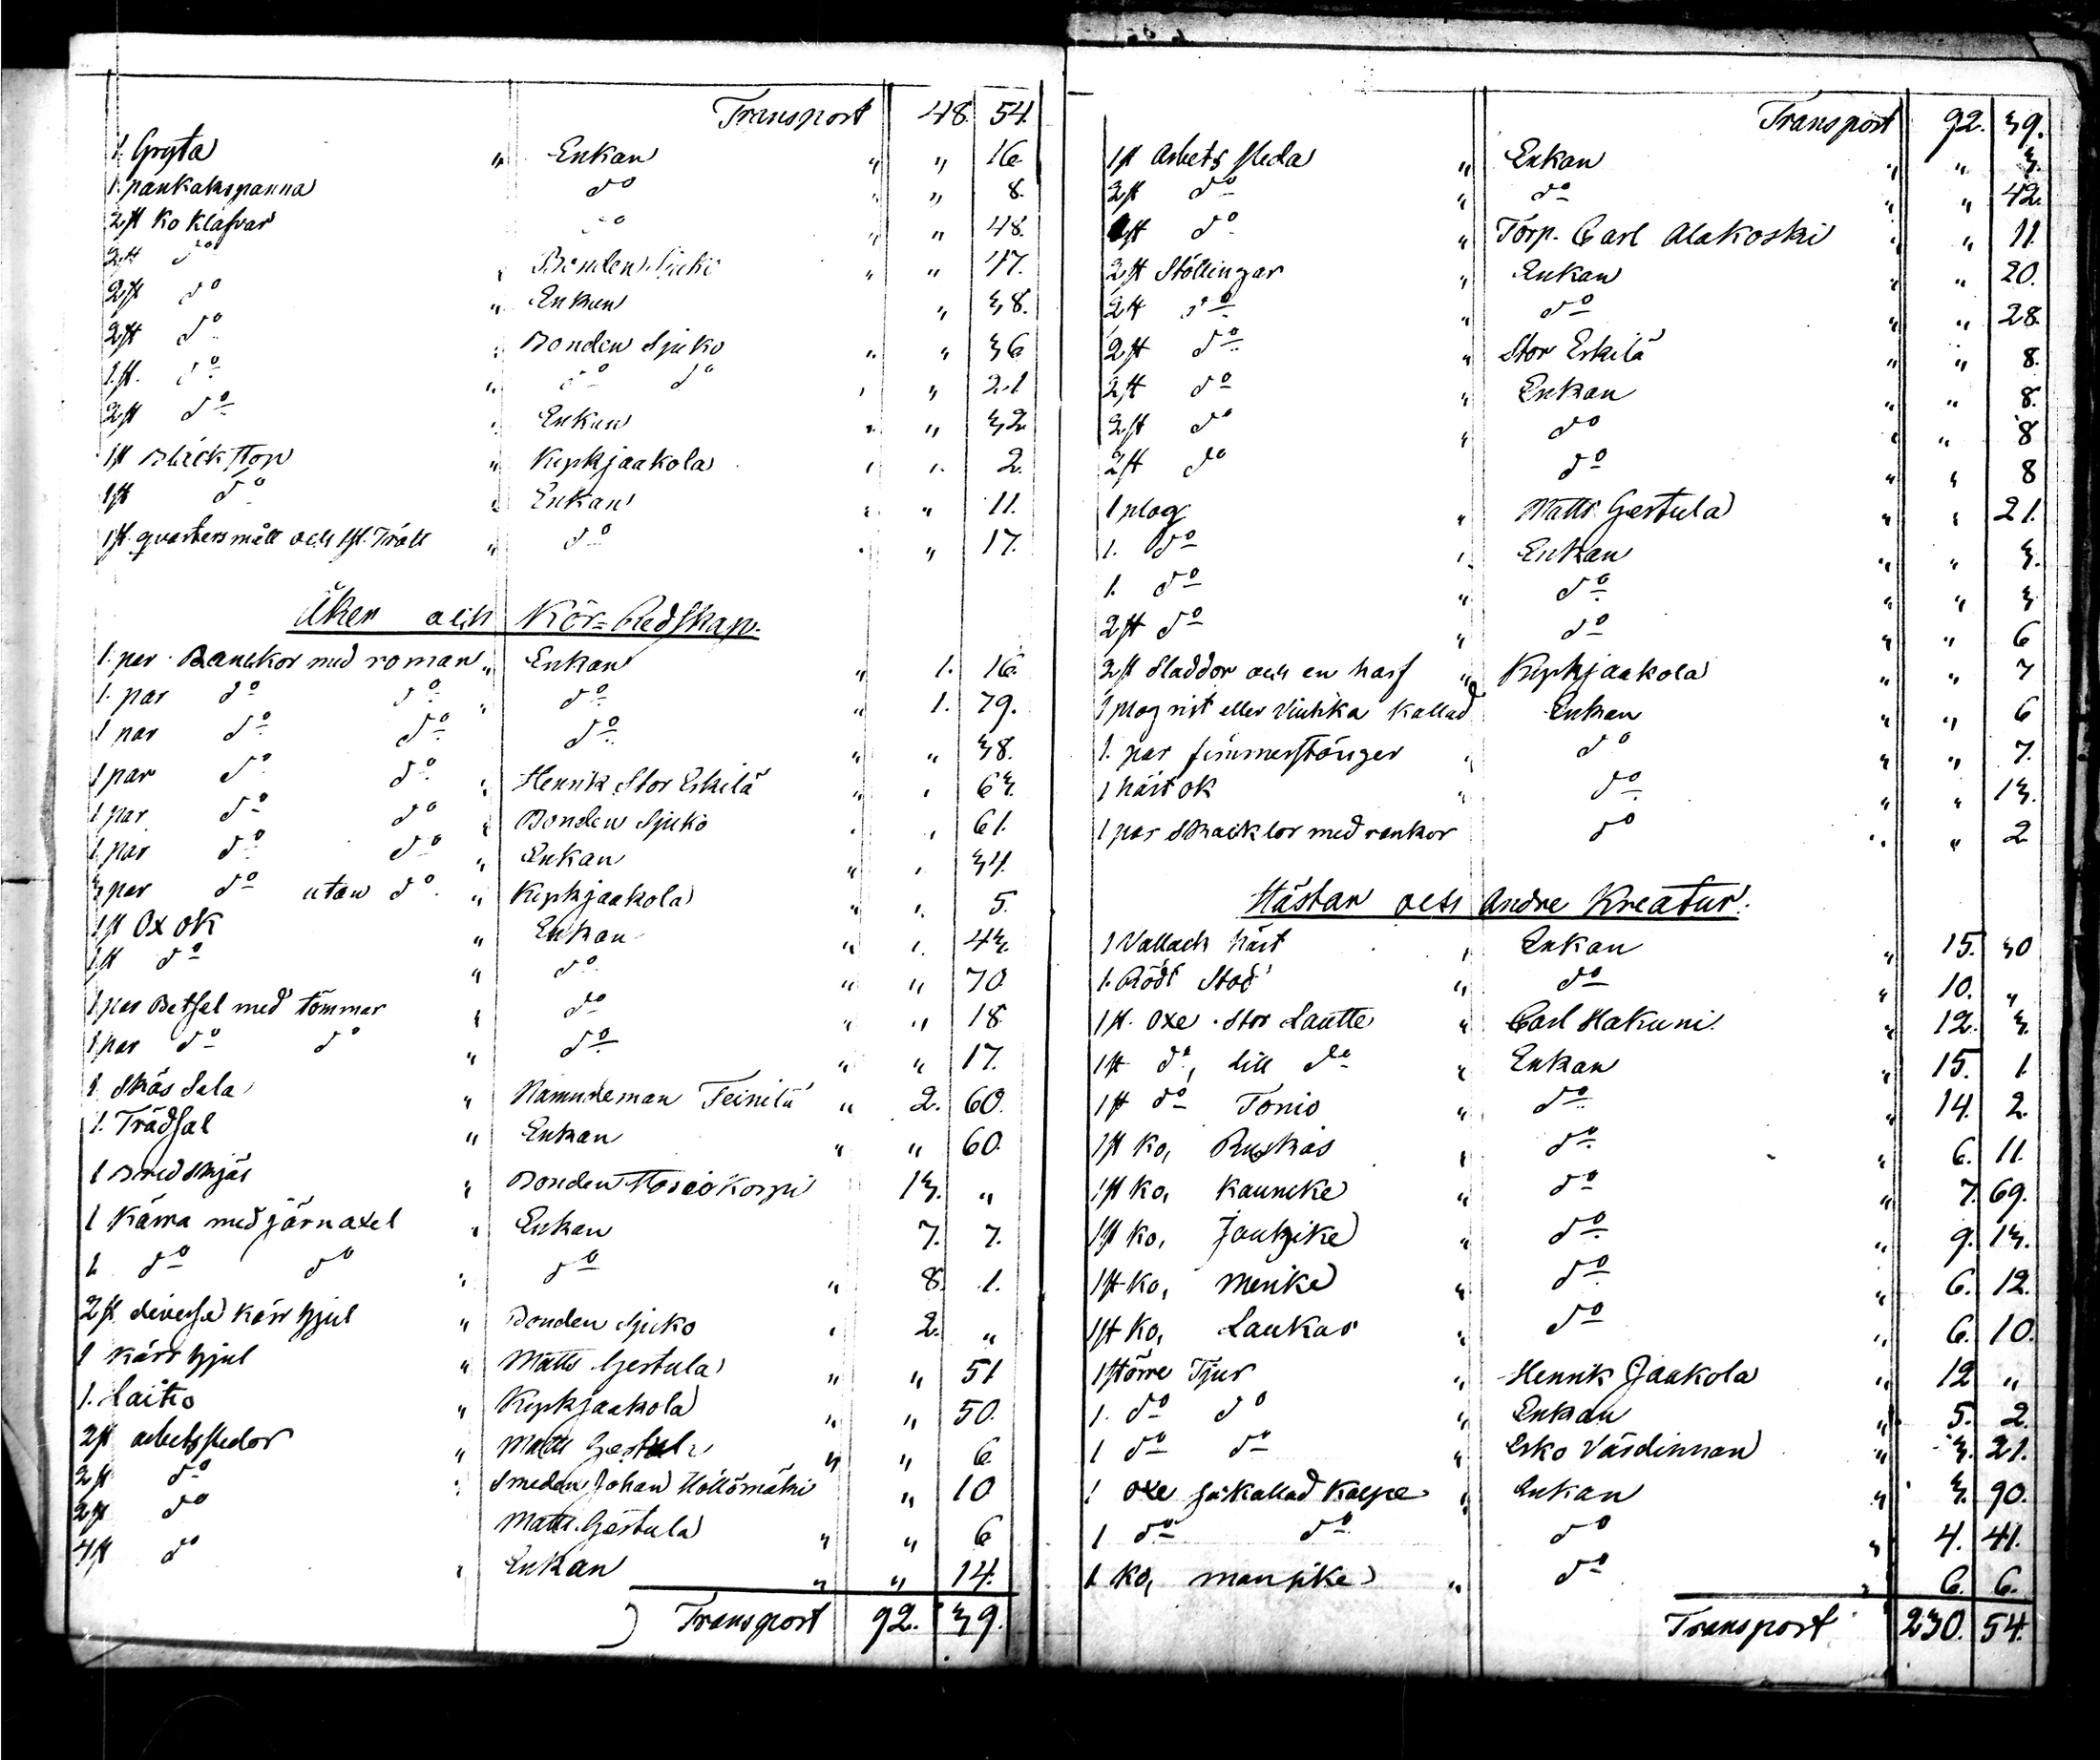 Transport 48. 54.
1. Gryta " Enkan " " 16.
1. pankakspanna do " " 8.
2 st Ko Klafvar do " " 48.
2 st do " Bonden Sjuko " " 47.
2 st do " Enkan " 38.
2 st do " Bonden Sjuko " " 36
1. st. do " do do " " 21
2 st do " Enkan " " 32
1 st Bläck stop " Kupkjaakola " " 2.
1 st do " Enkan " " 11.
1 st. quartersmått och 1 st. Tratt " do " " 17.
Åker och Kör-Redskap.
1. par Banckor med roman " Enkan " 1. 16.
1. par do do " do " 1. 79.
1 par do do do " " 38.
1 par do do " Henrik Stor Eskilä " " 63.
1 par do do " Bonden Sjuko " " 61.
1. par do do " Enkan " " 34.
3 par do utan do. " Kupkjaakola " " 5.
1 st Ox ok " Enkan " " 43.
1 st do " do " " 70.
1 par Betsel med tömmar " do " " 18.
1 par do do " do " " 17.
1. Skås Sela " Nämndeman Feinilä " 2. 60.
1. Trädsal " Enkan " " 60.
1 Bred " Bonden Korpi 13. "
1 Kärra med järnaxel " Enkan 7. 7.
1. do do " do " 8. 1.
2 st diverse kärr hjul " Bonden Sjuko " 2. "
1 kärr hjul " Matts Gestula " " 51
1. Laitio " Kupkjaakola " " 50.
2 st arbetsslädor " Matts Gestula " " 6.
2 st do " Smeden Johan Höltömäki " 10
2 st do Matts Gestula " " 6
4 st do " Enkan " " 14.
Transport 92. 39.
Transport 92. 39.
1 st Arbets släda " Enkan " " 3.
2 st do " do " " 42.
1 st do " Torp. Carl Alakoski " " 11.
2 st Stöllingar " Enkan " " 20.
2 st do " do " " 28.
2 st do " Stor Eskilä " " 8.
2 st do " Enkan " " 8.
2 st do " do " " 8
2 st do " do " " 8
1 plog " Matts Gestula " " 21.
1. do " Enkan " " 3.
1. do " do " " 3
2 st do " do " " 6
2 st Sladdor och en harf " Kupkjaakola " " 7
1 plog rist eller kallad Enkan " " 6
1. par fimmerstönger " do " " 7.
1 häst ok " do " " 13.
1 par Skacklor med rankor do " " 2
Hästar och Andre Kreatur.
1 Vallack häst " Enkan " 15. 30
1. Rödt Stod " do " 10. "
1 st. oxe Stor Lautte " Carl Hakuni. " 12. 3.
1 st do, lill do " Enkan " 15. 1.
1 st do Tonio " do " 14. 2.
1 st ko, Ruskas " do " 6. 11.
1 st ko, Kauneke " do " 7. 69.
1 st ko, Joutzike " do " 9. 13.
1 st ko, Menike " do " 6. 12.
1 st ko, Laukas " do " 6. 10.
1 större Tjur " Henrik Jaakola " 12 "
1. do do " Enkan " 5. 2.
1 do do " Esko Värdinnan " 3. 21.
1 oxe så kallad Kaspe " Enkan " 3. 90.
1 do do do " 4. 41.
1 ko, mansike " do " 6. 6.
Transport 230. 54.